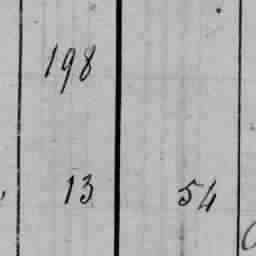 198
13 54